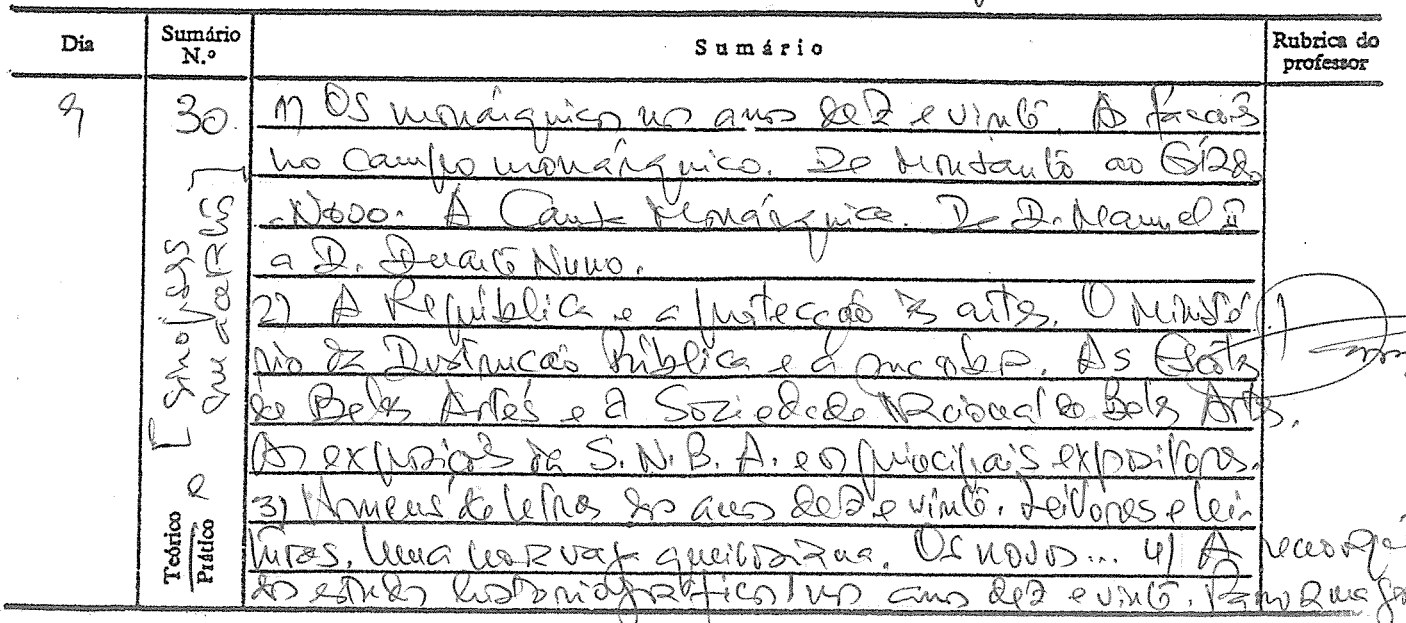 Dia
Sumário N.º
Sumário
Rubrica do professor
9
30
1) Os monárquicos nos anos dez e vinte. As facções
no campo monárquico. De Monsanto ao Sidó-
Novo. A Causa Monárquica. De D. Manuel II
a D. Duarte Nuno.
2) A República e a protecção às artes. O Ministé
rio da Instrução Pública e a As Escolas
de Belas Artes e a Sociedade Nacional de Belas Artes.
As exposições da S.N.B.A. e os principais expositores.
3) Homens de letras dos anos dez e vinte. Leitores e lei-
turas. Uma nova vaga queirosiana. Os novos... 4) A
dos estudos historiográficos nos anos dez e vinte. Panorama
Teórico
Prático